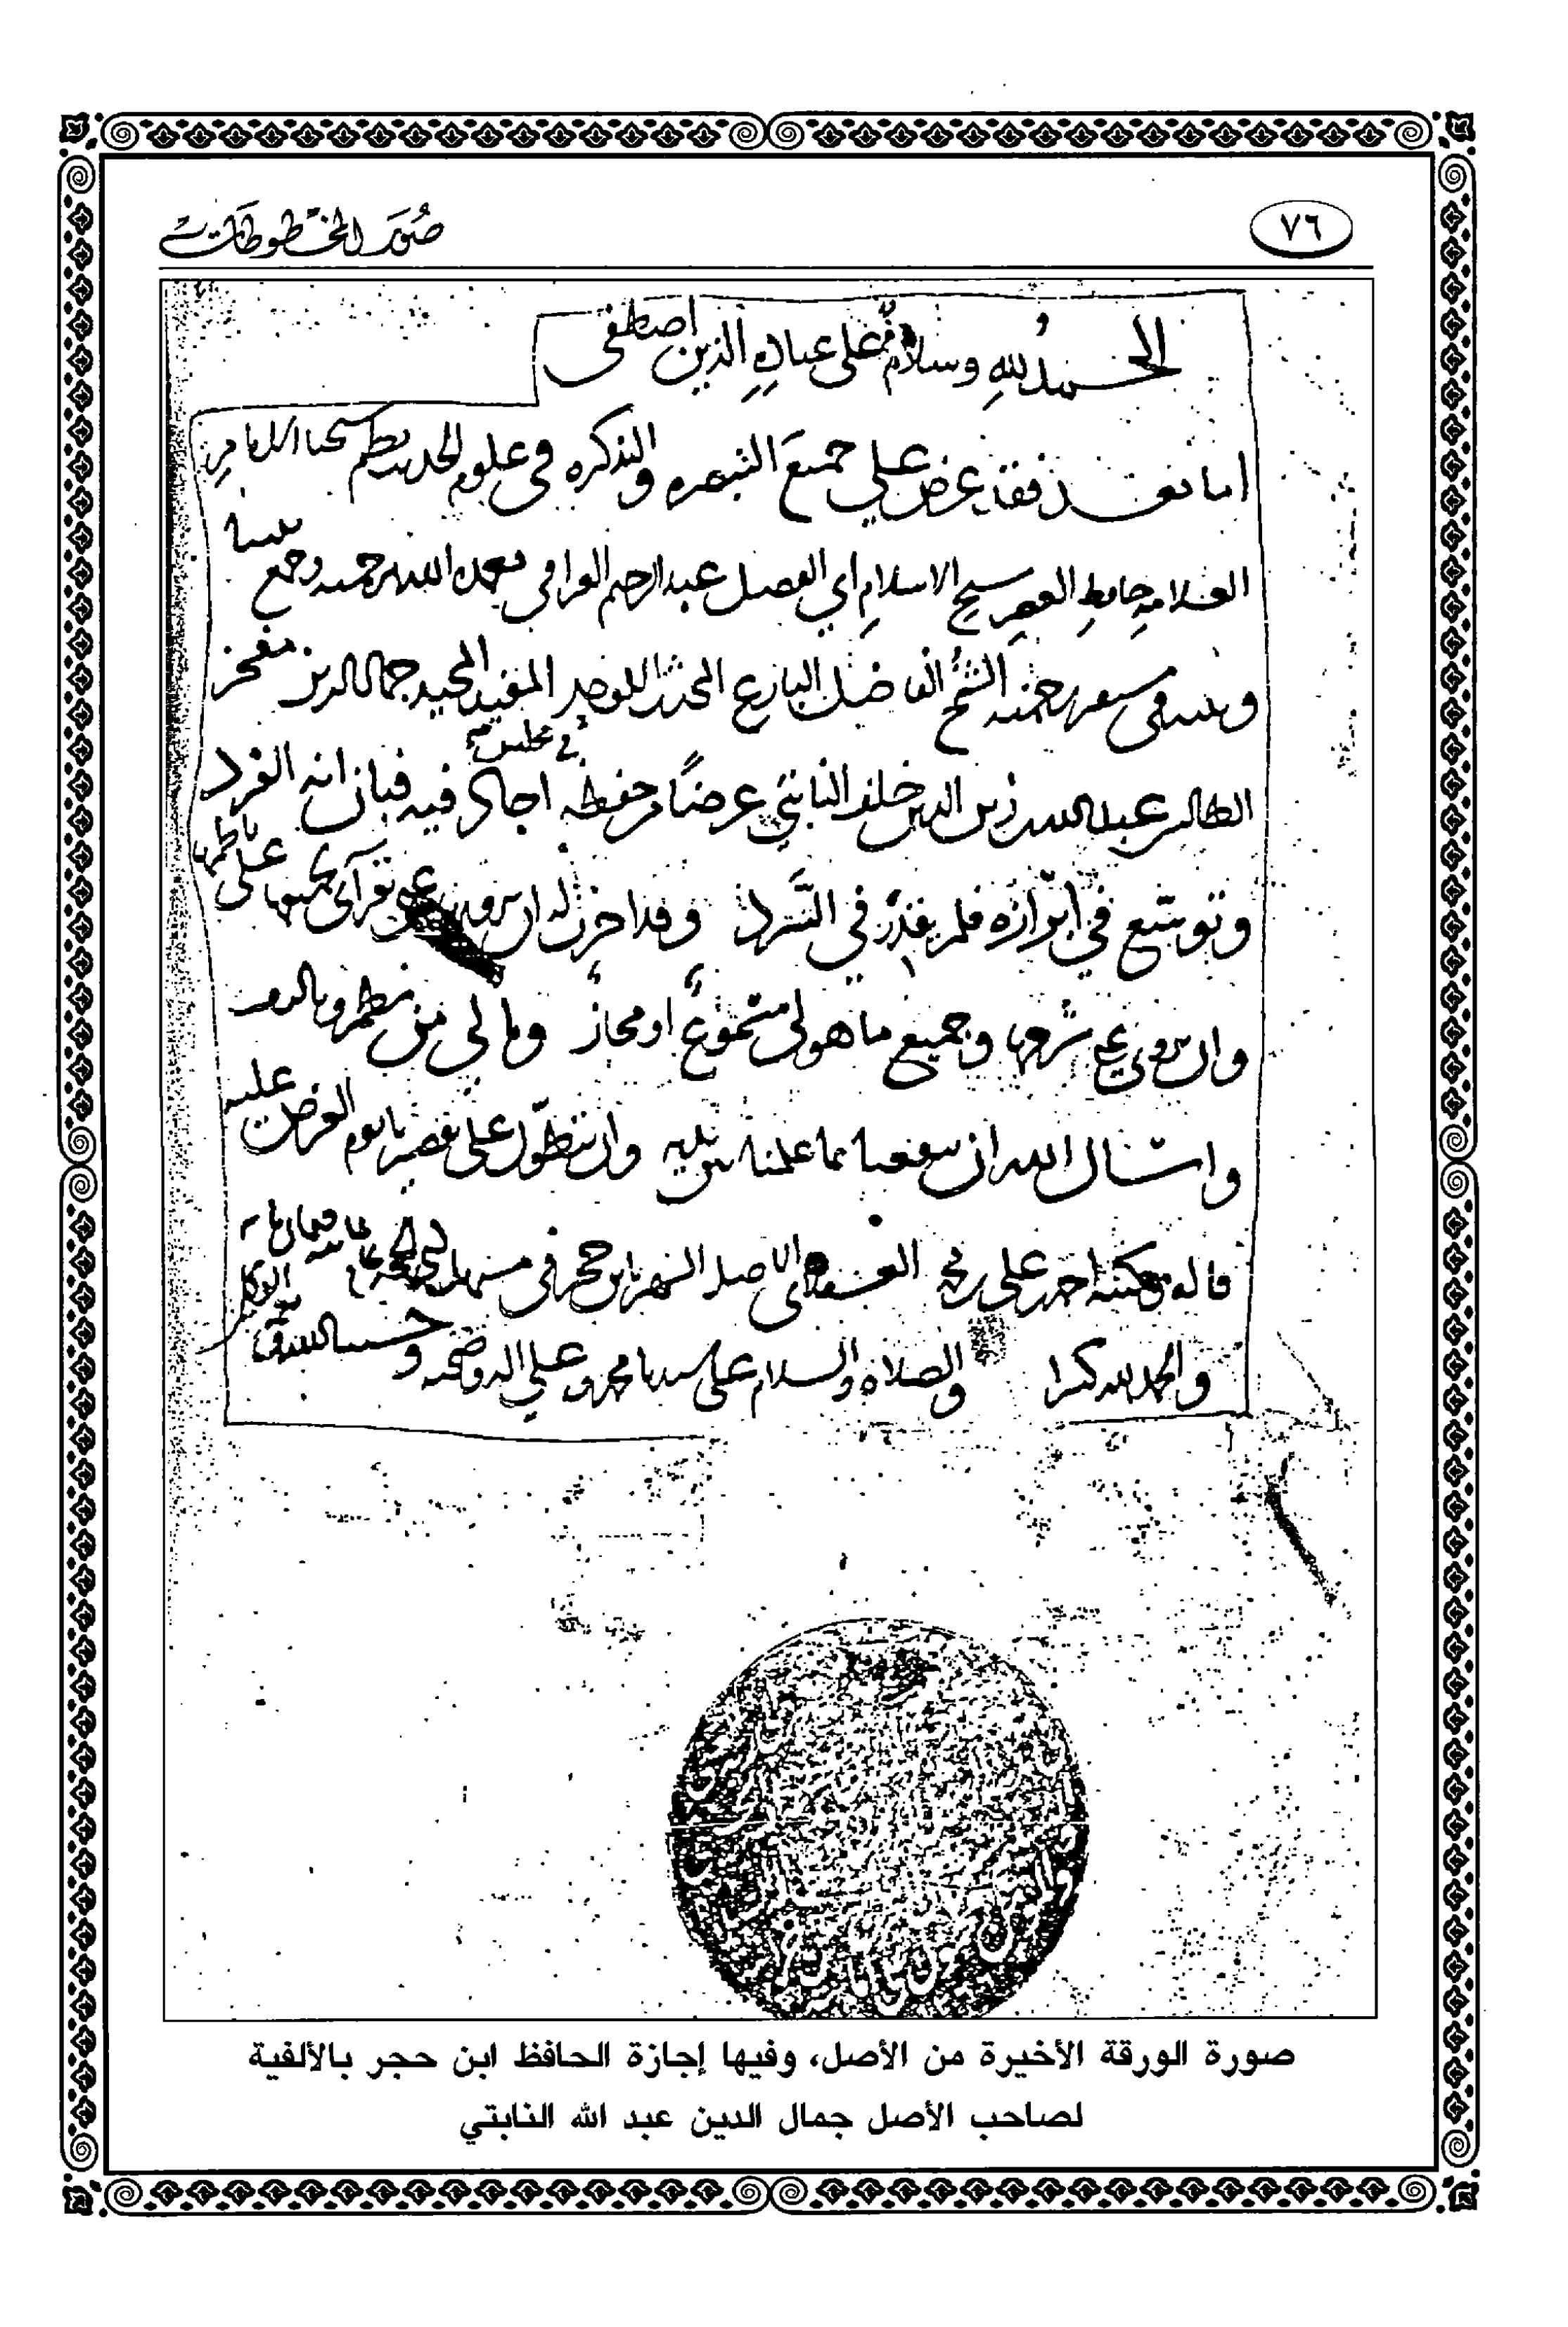 ٧٦
صور المخطوطات
الحمد لله وسلام على عباده الذين اصطفى
اما بعد فقد عرض علي جميع التبصره والتذكره في علوم الحديث نظم شيخنا الامام
العلامه حافظ العصر شيخ الاسلام ابي الفضل عبد الرحيم العراقي تغمده الله برحمته وجمع بيننا
وبينه في مستقر رحمته الشيخ الفاضل البارع المحدث الاوحد المفيد المجيد جمال الدين مفخر
الطالبين عبد الله بن زين الدين خلف النابتي عرضا من حفظه في مجلس اجاد فيه فبان انه الفرد
وتوسع في ابرازه فلم يقدر في السرد وقد اجزت له ان يرويه عني بقراتي لها على ناظمها
وان يروي عني شرحها وجميع ما هو لي مسموع او مجاز وما لي من نظم وتاليف
واسال الله ان ينفعنا بما علمنا بمنه وان يتطول على تقصيرنا يوم العرض عليه
قاله وكتبه احمد بن علي بن محمد العسقلاني الاصل الشهير بابن حجر في
والحمد لله كثيرا والصلاه والسلام على سيدنا محمد وعلى اله وصحبه وحسبنا الله ونعم الوكيل
صورة الورقة الأخيرة من الأصل، وفيها إجازة الحافظ ابن حجر بالألفية
لصاحب الأصل جمال الدين عبد الله النابتي